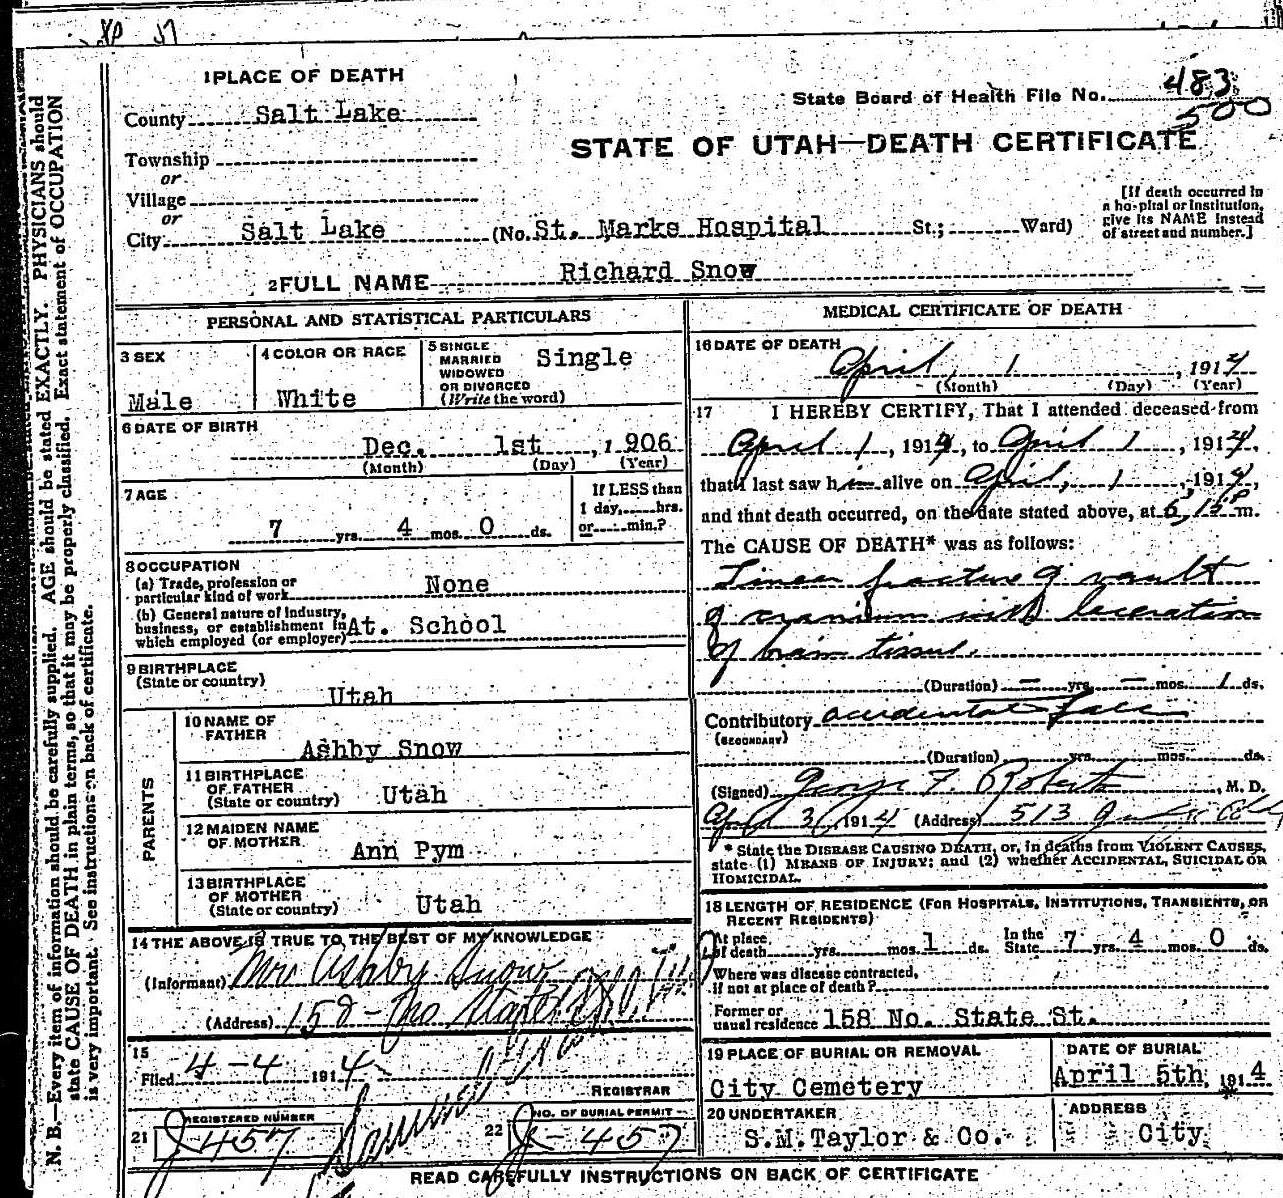 1 PLACE OF DEATH
County Salt Lake
Township
or
Village
or
City Salt Lake (No. St. Marks Hospital St.; Ward)
State Board of Health File No. 483
500
STATE OF UTAH—DEATH CERTIFICATE
[If death occurred in
a hospital or institution,
give its NAME instead
of street and number.]
2 FULL NAME Richard Snow
PERSONAL AND STATISTICAL PARTICULARS
3 SEX
Male
4 COLOR OR RACE
White
5 SINGLE
MARRIED
WIDOWED
OR DIVORCED
(Write the word)
Single
6 DATE OF BIRTH
Dec. 1st, 1906
(Month) (Day) (Year)
7 AGE
7 yrs. 4 mos. 0 ds.
If LESS than
1 day, hrs.
or min.?
8 OCCUPATION
(a) Trade, profession or
particular kind of work None
(b) General nature of Industry,
business, or establishment in
which employed (or employer) At. School
9 BIRTHPLACE
(State or country)
Utah
PARENTS
10 NAME OF
FATHER
Ashby Snow
11 BIRTHPLACE
OF FATHER
(State or country) Utah
12 MAIDEN NAME
OF MOTHER
Ann Pym
13 BIRTHPLACE
OF MOTHER
(State or country) Utah
14 THE ABOVE IS TRUE TO THE BEST OF MY KNOWLEDGE
(Informant) Mrs Ashby Snow
(Address) 158 - No State
15
Filed 4-4 1914
REGISTRAR
21 REGISTERED NUMBER
J-457
22 NO. OF BURIAL PERMIT
J-457
MEDICAL CERTIFICATE OF DEATH
16 DATE OF DEATH
April, 1, 1914
(Month) (Day) (Year)
17 I HEREBY CERTIFY, That I attended deceased from
April 1, 1914, to April 1, 1914,
that I last saw him alive on April, 1, 1914,
and that death occurred, on the date stated above, at 6,15 P m.
The CAUSE OF DEATH* was as follows:
Linear fracture of vault
of cranium with laceration
of brain tissue.
(Duration) — yrs. — mos. 1 ds.
Contributory accidental fall
(SECONDARY)
(Duration) yrs. mos. ds.
(Signed) George F. Roberts, M. D.
April 3, 1914 (Address) 513
* State the DISEASE CAUSING DEATH, or, in deaths from VIOLENT CAUSES,
state (1) MEANS OF INJURY; and (2) whether ACCIDENTAL, SUICIDAL OR
HOMICIDAL.
18 LENGTH OF RESIDENCE (FOR HOSPITALS, INSTITUTIONS, TRANSIENTS, OR
RECENT RESIDENTS)
At place
of death yrs. mos. 1 ds. In the
State 7 yrs. 4 mos. 0 ds.
Where was disease contracted,
if not at place of death?
Former or
usual residence 158 No. State St.
19 PLACE OF BURIAL OR REMOVAL
City Cemetery
DATE OF BURIAL
April 5th, 1914
20 UNDERTAKER
S.M. Taylor & Co.
ADDRESS
City
READ CAREFULLY INSTRUCTIONS ON BACK OF CERTIFICATE
N. B.—Every item of information should be carefully supplied. AGE should be stated EXACTLY. PHYSICIANS should
state CAUSE OF DEATH in plain terms, so that it may be properly classified. Exact statement of OCCUPATION
is very important. See instructions on back of certificate.